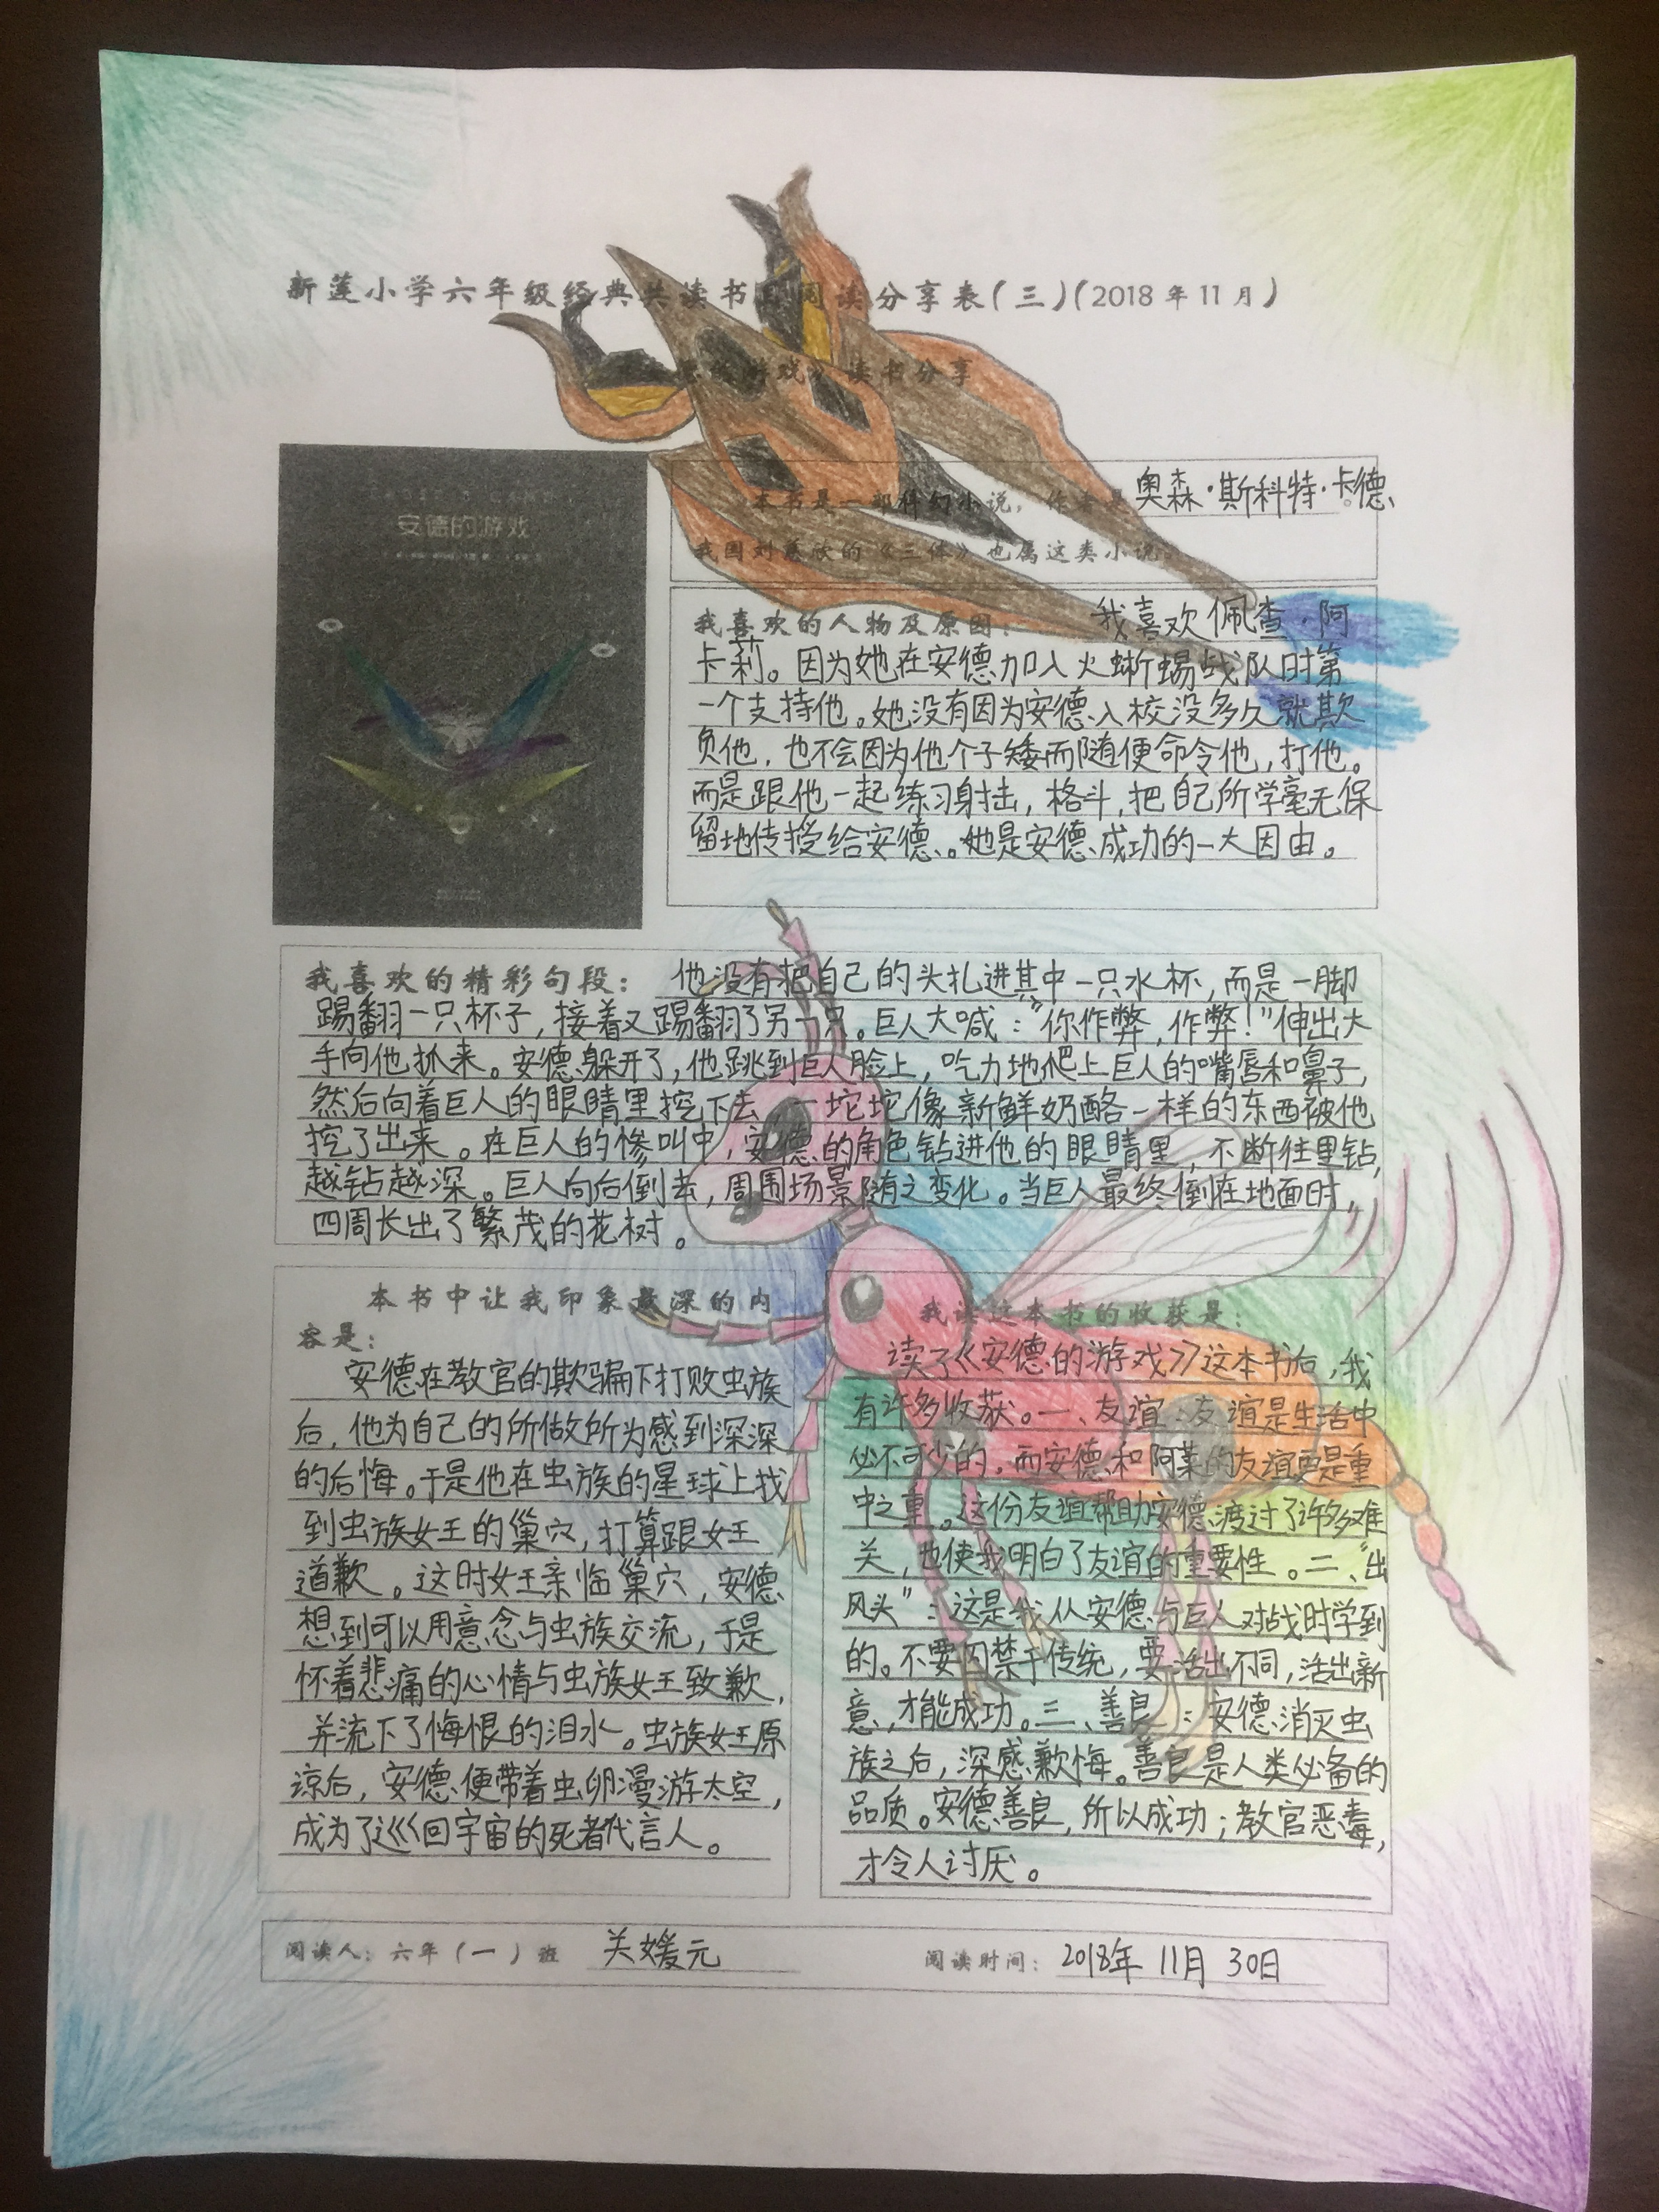 新莲小学六年级经典共读书目阅读分享表（三）（2018年11月）
《安德的游戏》读书分享
安德的游戏
本书是一部科幻小说，作者是奥森·斯科特·卡德。
我国刘慈欣的《三体》也属这类小说。
我喜欢的人物及原因：我喜欢佩查·阿
卡莉。因为她在安德加入火蜥蜴战队时第
一个支持他。她没有因为安德入校没多久就欺
负他，也不会因为他个子矮而随便命令他，打他。
而是跟他一起练习身击，格斗，把自己所学毫无保
留地传授给安德。她是安德成功的一大因由。
我喜欢的精彩句段：他没有把自己的头扎进其中一只水杯，而是一脚
踢翻一只杯子，接着又踢翻了另一只。巨人大喊：“你作弊，作弊！”伸出大
手向他抓来。安德躲开了，他跳到巨人脸上，吃力地爬上巨人的嘴唇和鼻子，
然后向着巨人的眼睛里挖下去，一坨坨像新鲜奶酪一样的东西被他
挖了出来。在巨人的惨叫中，安德的角色钻进他的眼睛里，不断往里钻，
越钻越深。巨人向后倒去，周围场景随之变化。当巨人最终倒在地面时，
四周长出了繁茂的花树。
本书中让我印象最深的内
容是：
安德在教官的欺骗下打败虫族
后，他为自己的所做所为感到深深
的后悔。于是他在虫族的星球上找
到虫族女王的巢穴，打算跟女王
道歉。这时女王亲临巢穴，安德
想到可以用意念与虫族交流，于是
怀着悲痛的心情与虫族女王致歉，
并流下了悔恨的泪水。虫族女王原
谅后，安德便带着虫卵漫游太空，
成为了巡回宇宙的死者代言人。
我读这本书的收获是：
读了《安德的游戏》这本书后，我
有许多收获。一、友谊：友谊是生活中
必不可少的，而安德和阿莱的友谊更是重
中之重。这份友谊帮助安德渡过了许多难
关，也使我明白了友谊的重要性。二、“出
风头”：这是我从安德与巨人对战时学到
的。不要囚禁于传统，要活出不同，活出新
意，才能成功。三、善良：安德消灭虫
族之后，深感歉悔。善良是人类必备的
品质。安德善良，所以成功；教官恶毒，
才令人讨厌。
阅读人：六年（一）班 关媛元 阅读时间：2018年 11月 30日